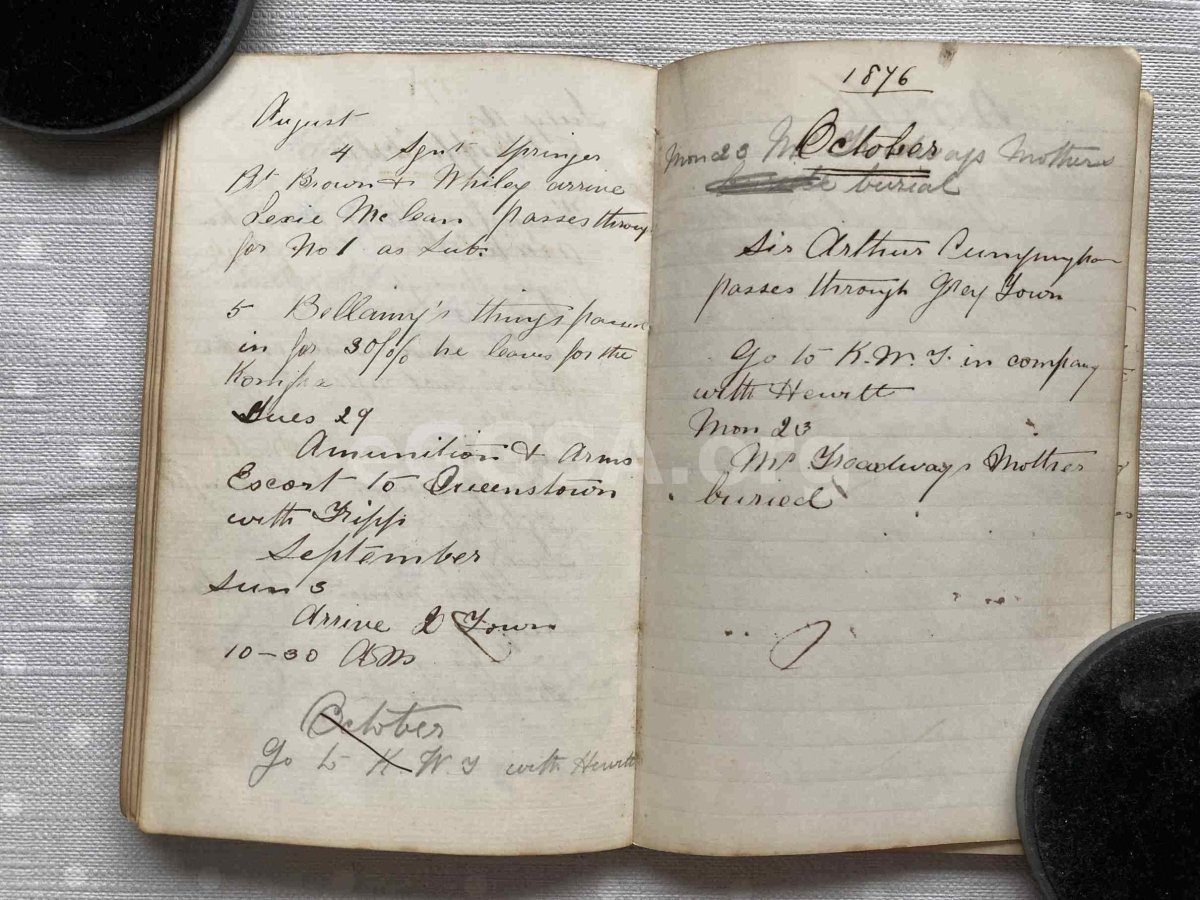 August
4 Sgnt Springer
Bt Brown & Whiley arrive
Lexie McLean passes throug
for No 1 as Sub.
5 Bellamy's things passed
in for 30/0/0 he leaves for the
Tues 29
Amunition & Arms
Escort to Queenstown
with Tripp
September
Sun 3
Arrive Q Town
10-30 AM
October
Go to K.W.T with Hewitt
1876
October
Mon 23 Mr Treadways Mothers
burial
Sir Arthur Cunyngham
passes through Grey Town
Go to K.W.T. in company
with Hewitt
Mon 23
Mr Treadways Mother
buried
GSSA.org